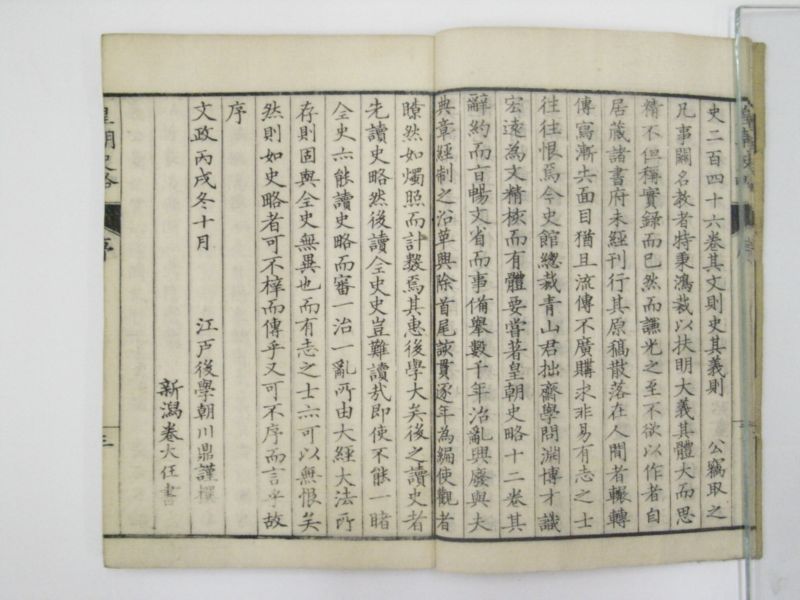 史二百四十六卷其文則史其義則 公竊取之
凡事關名教者特秉鴻裁以扶明大義其體大而思
精不但稱實錄而已然而謙光之至不欲以作者自
居藏諸書府未經刊行其原稿散落在人間者輾轉
傳寫漸失面目猶且流傳不廣購求非易有志之士
往往恨焉今史館總裁青山君拙齋學問淵博才識
宏遠為文精核而有體要嘗著皇朝史略十二卷其
辭約而旨暢文省而事備舉數千年治亂興廢與夫
典章經制之沿革興除首尾該貫逐年為編使觀者
瞭然如燭照而計數焉其惠後學大矣後之讀史者
先讀史略然後讀全史史豈難讀哉即使不能一睹
全史亦能讀史略而審一治一亂所由大經大法所
存則固與全史無異也而有志之士亦可以無恨矣
然則如史略者可不梓而傳乎又可不序而言乎故
序
文政丙戌冬十月
江戸後學朝川鼎謹撰
新潟卷大任書
皇朝史略
序
三